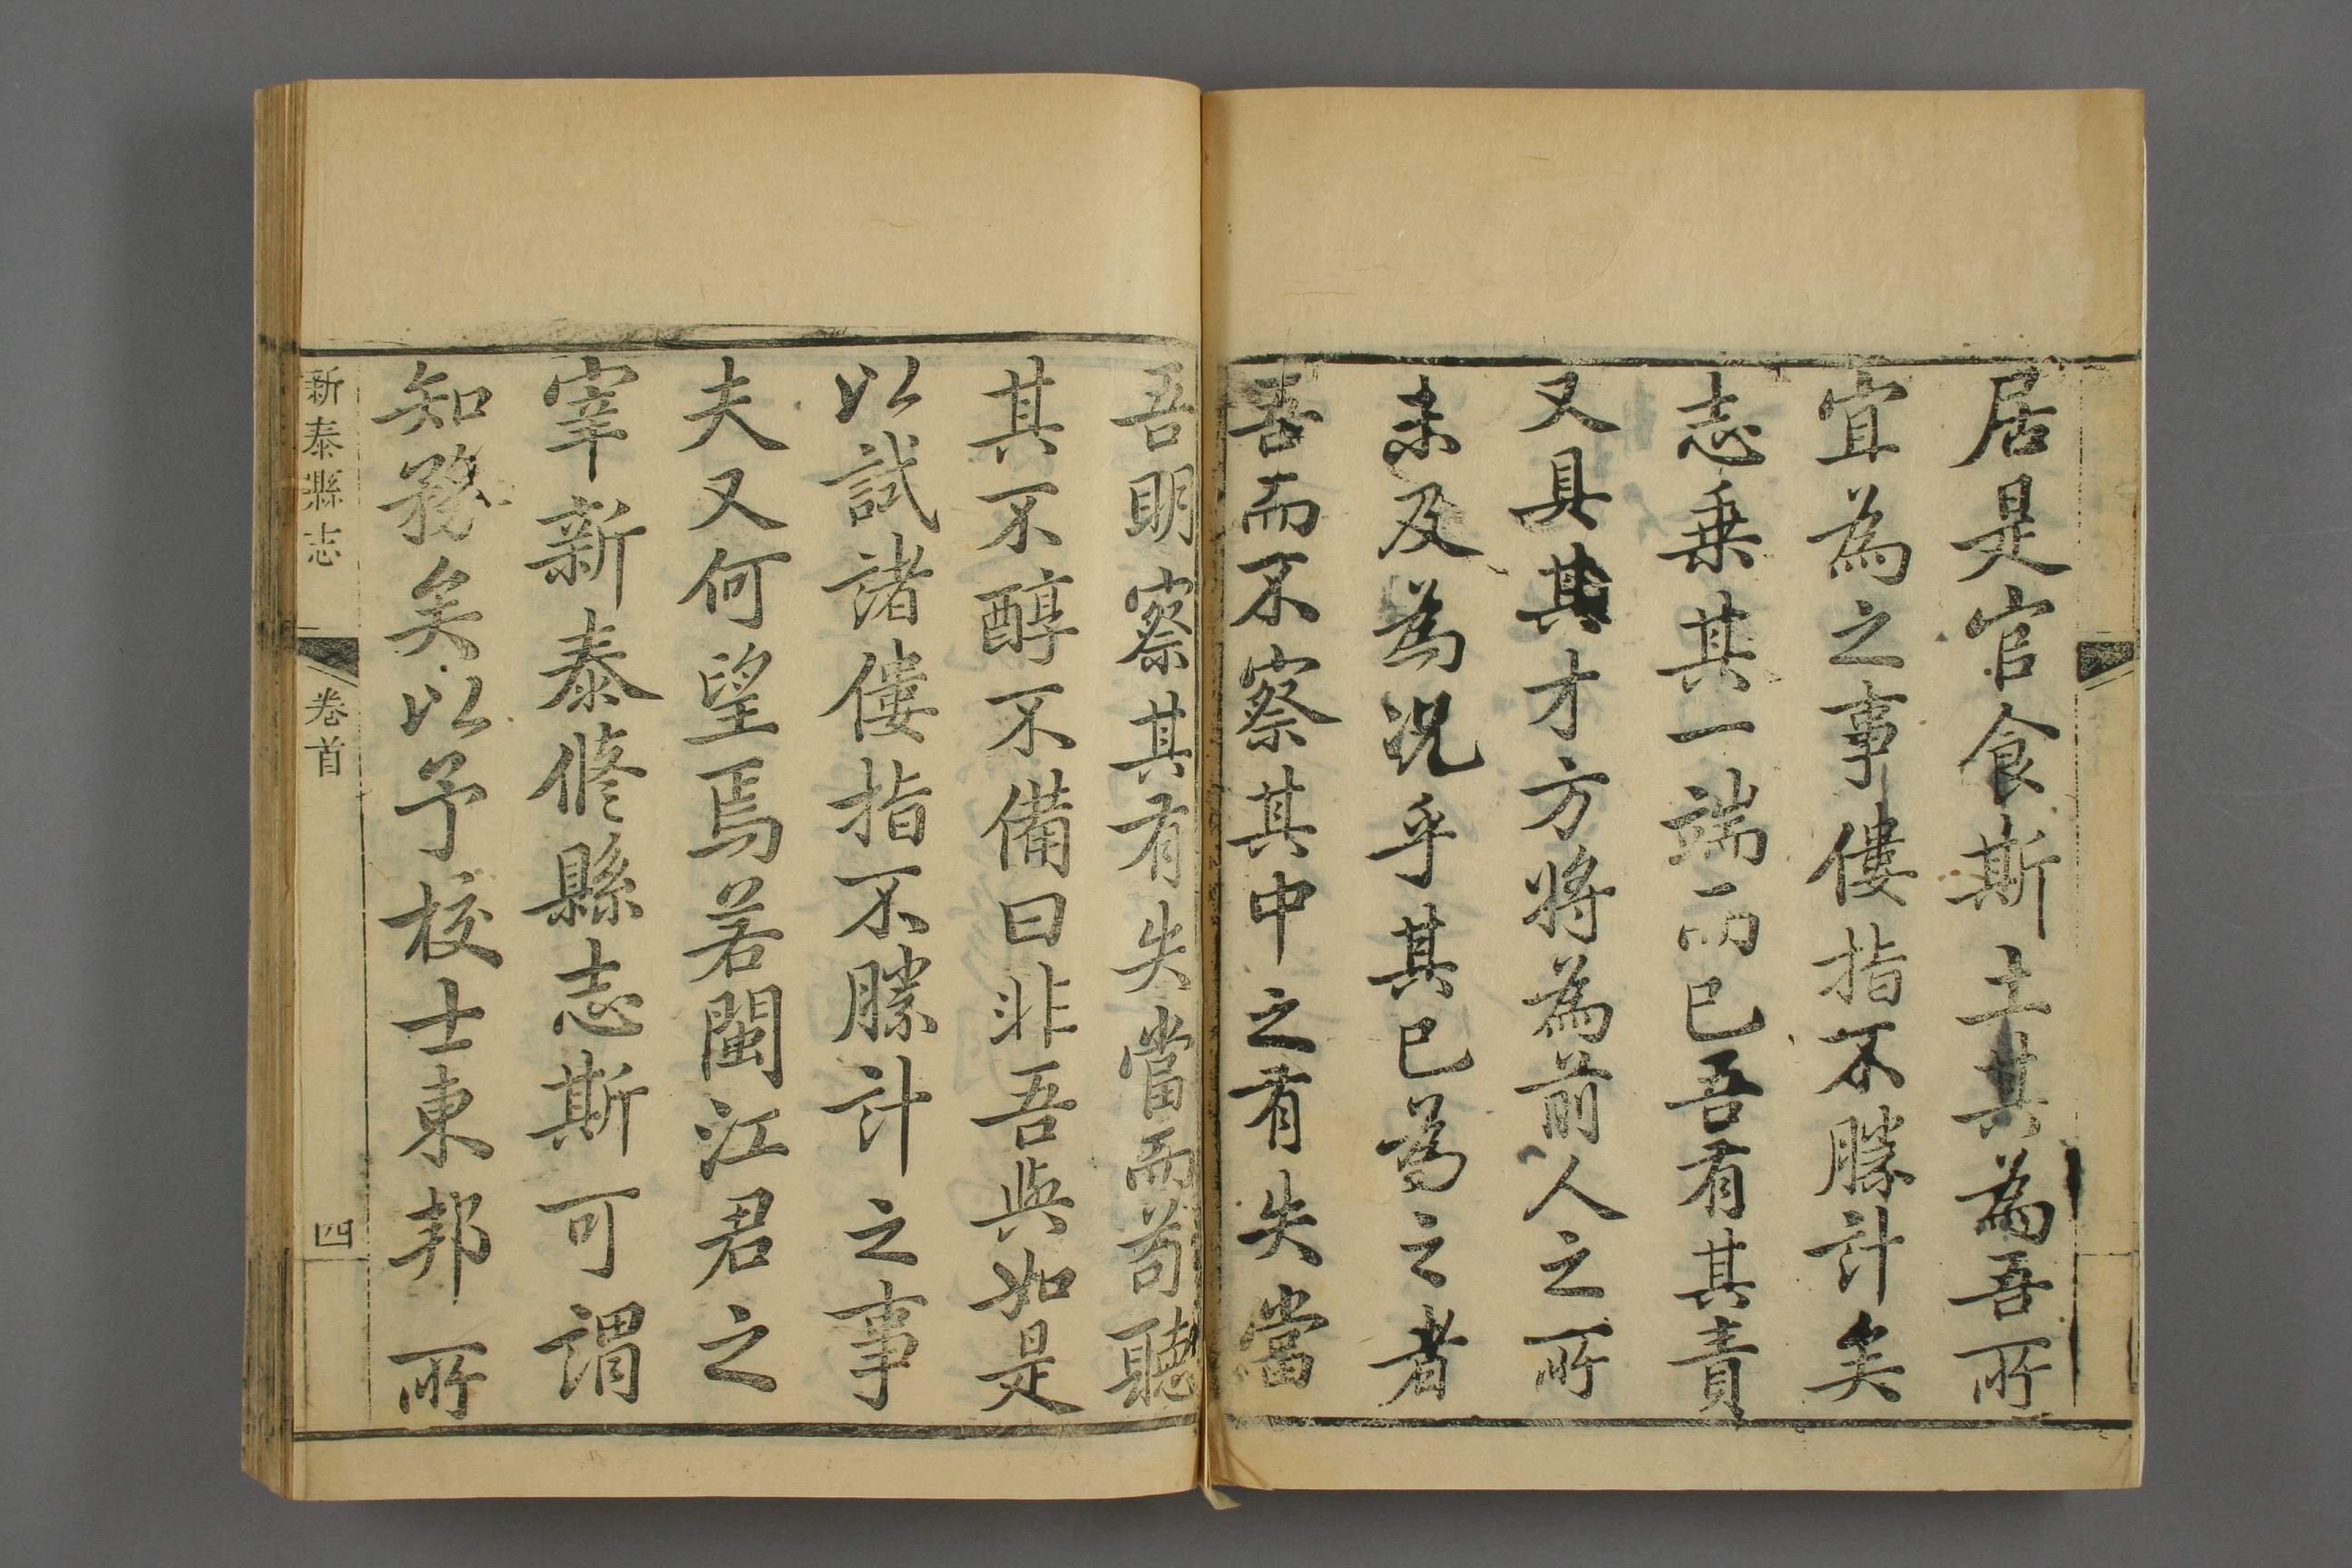 居是官食斯土其為吾所
宜為之事僂指不勝計矣
志乗其一端而已吾有其責
又具其才方將為前人之所
未及為況乎其已為之者
吾而不察其中之有失當
吾明察其有失當而苟聽
其不醇不備曰非吾與如是
以試諸僂指不勝計之事
夫又何望焉若閩江君之
宰新泰修縣志斯可謂
知務矣以予校士東邦所
新泰縣志
卷首
四